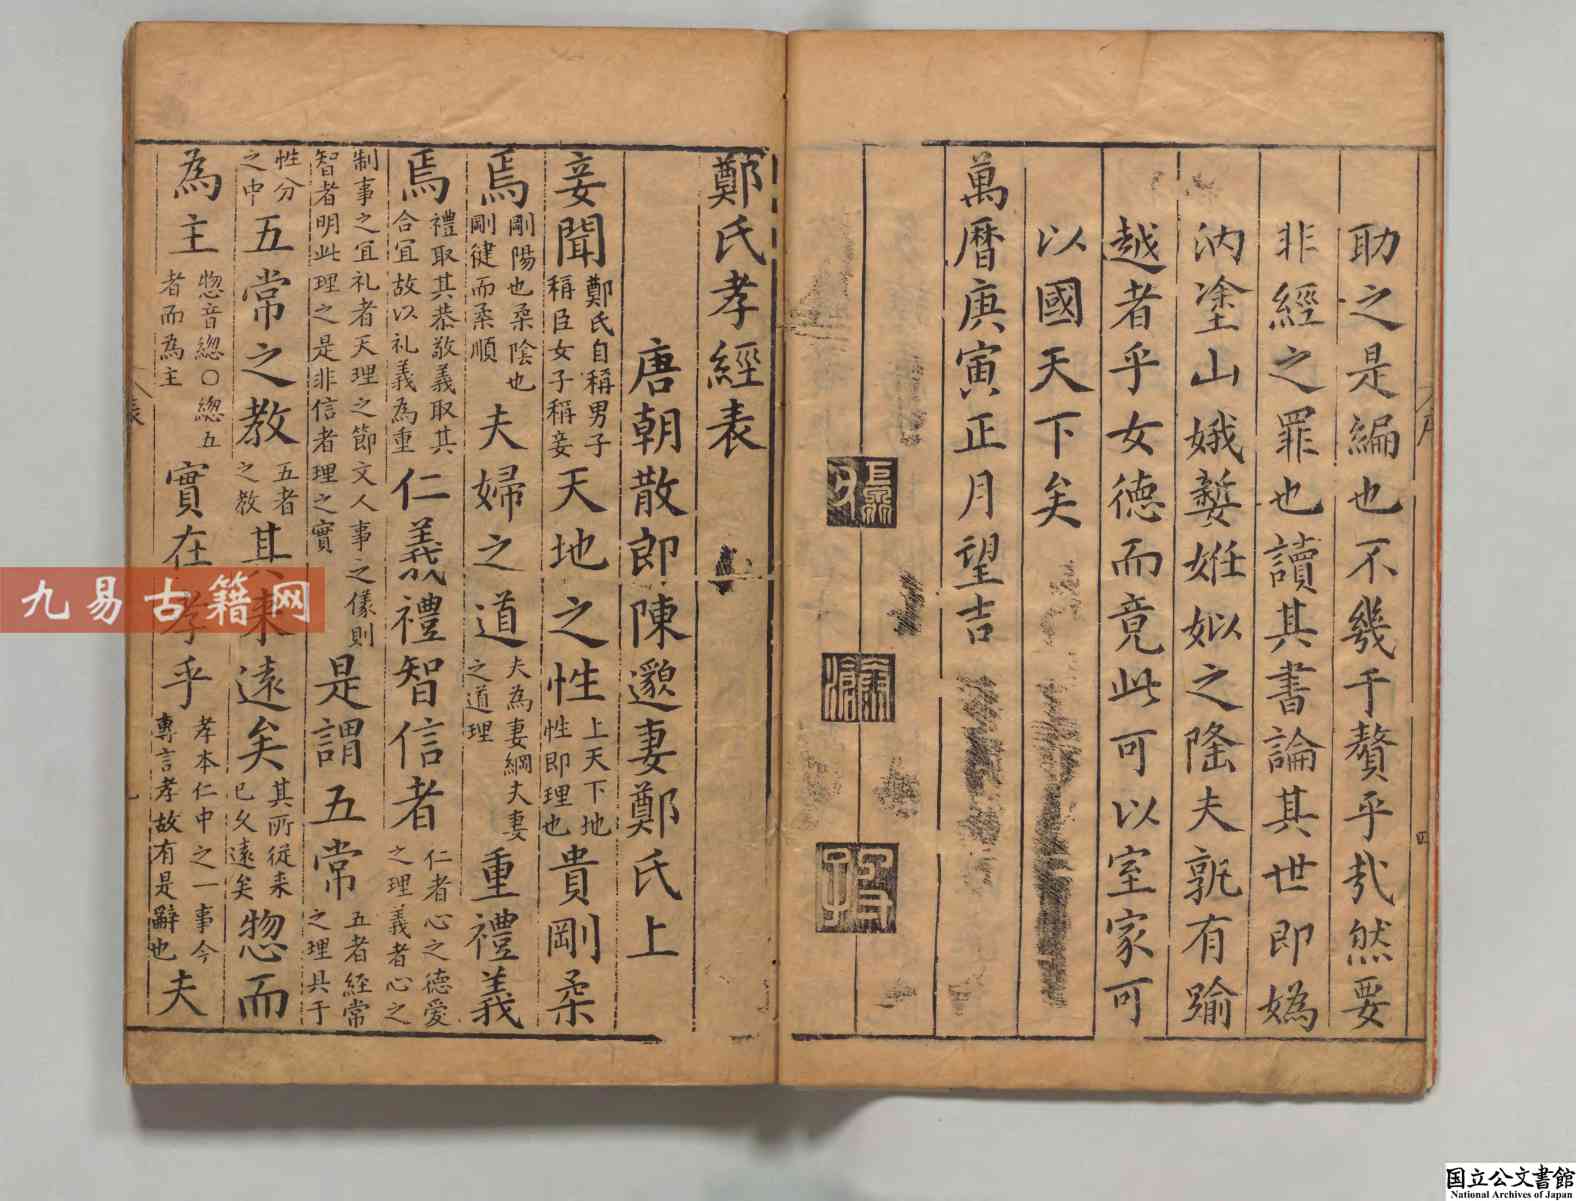 助之是編也不幾于贅乎哉然要
非經之罪也讀其書論其世即媯
汭塗山娥嫠姙姒之隆夫孰有踰
越者乎女德而竟此可以室家可
以國天下矣
萬曆庚寅正月望吉
鄭氏孝經表
唐朝散郎陳邈妻鄭氏上
妾聞鄭氏自稱男子稱臣女子稱妾天地之性上天下地性即理也貴剛柔
焉剛陽也柔陰也剛健而柔順夫婦之道夫為妻綱夫妻之道理重禮義
焉禮取其恭敬義取其合宜故以礼義為重仁義禮智信者仁者心之德愛之理義者心之
制事之宜礼者天理之節文人事之儀則智者明此理之是非信者理之實是謂五常五者經常之理具于
性分之中五常之教五者之教其來遠矣其所從来已久遠矣惣而
為主惣音緫○緫五者而為主實在孝乎孝本仁中之一事今專言孝故有是辭也夫
九易古籍网
国立公文書館
National Archives of Japan